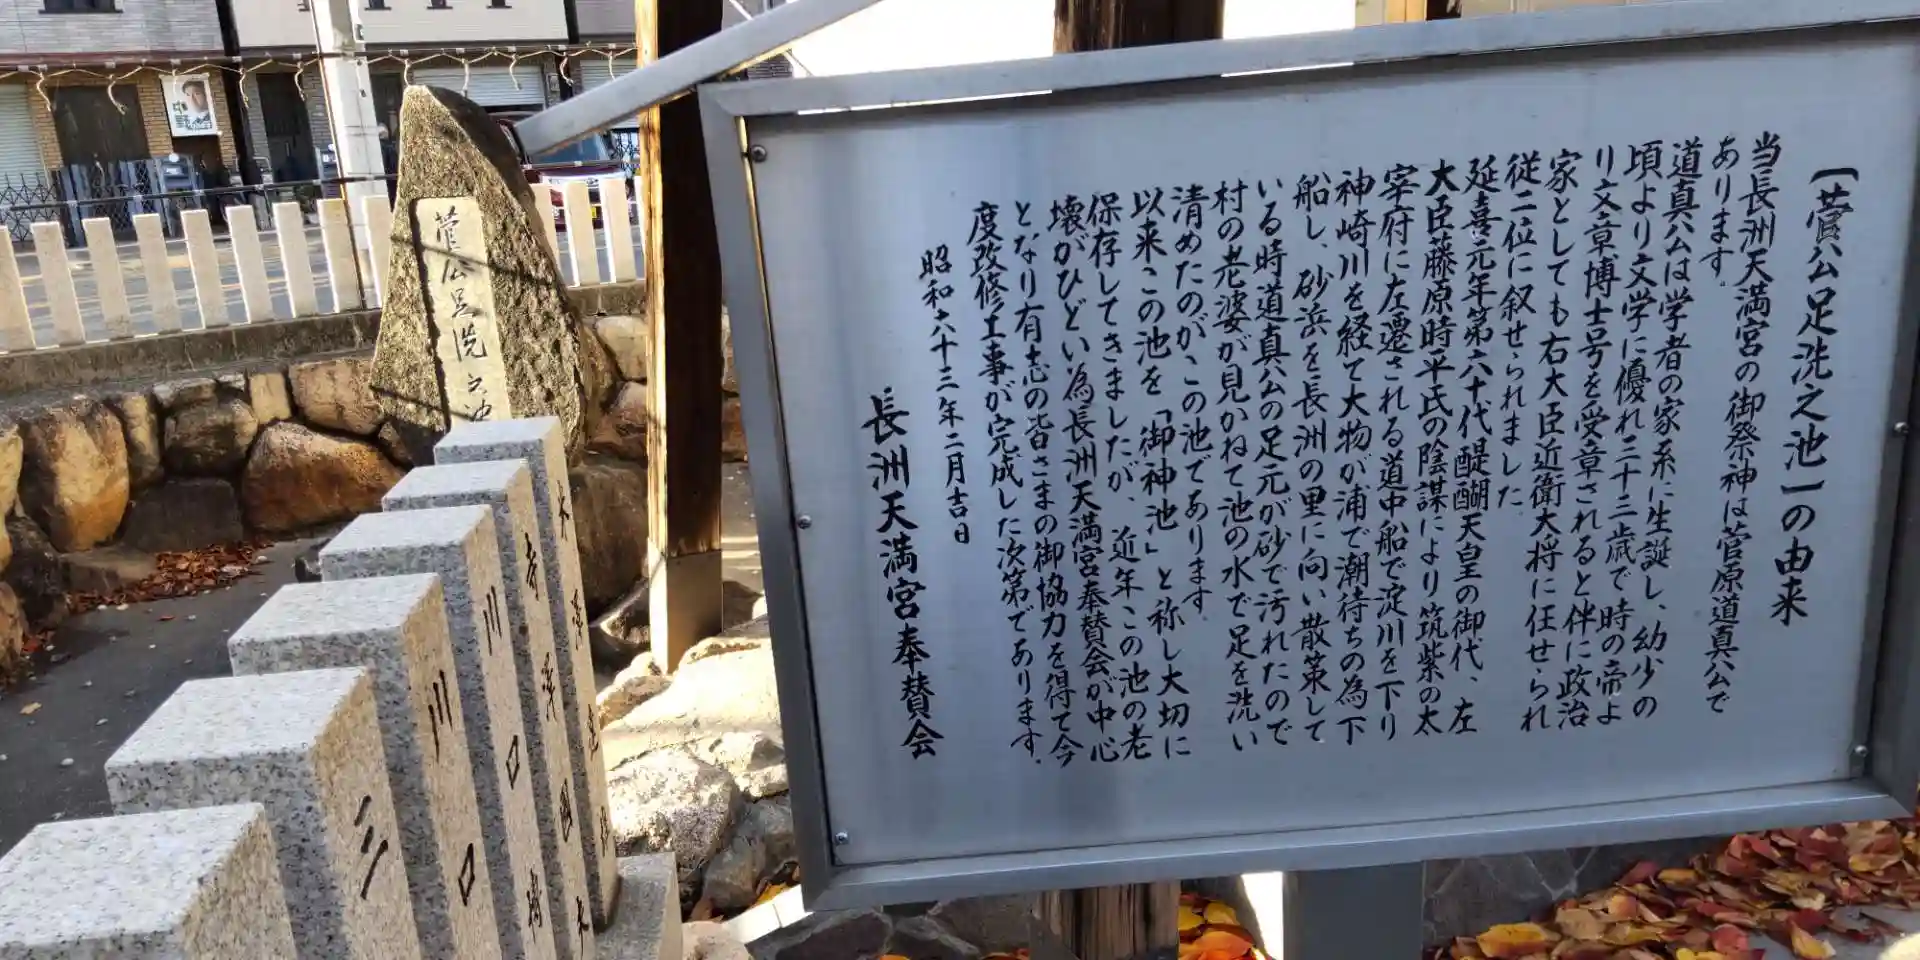 〔菅公足洗之池〕の由来
当長洲天満宮の御祭神は菅原道真公で
あります。
道真公は学者の家系に生誕し、幼少の
頃より文学に優れ三十三歳で時の帝よ
り文章博士号を受章されると伴に政治
家としても右大臣近衛大将に任せられ
従二位に叙せられました
延喜元年第六十代醍醐天皇の御代、左
大臣藤原時平氏の陰謀により筑紫の太
宰府に左遷される道中船で淀川を下り
神崎川を経て大物が浦で潮待ちの為下
船し、砂浜を長洲の里に向い散策して
いる時道真公の足元が砂で汚れたので
村の老婆が見かねて池の水で足を洗い
清めたのがこの池であります。
以来この池を「御神池」と称し大切に
保存してきましたが、近年この池の老
壊がひどい為長洲天満宮奉賛会が中心
となり有志の皆さまの御協力を得て今
度改修工事が完成した次第であります。
昭和六十三年二月吉日
長洲天満宮奉賛会
菅公足洗之池
中野
川口
川口
三